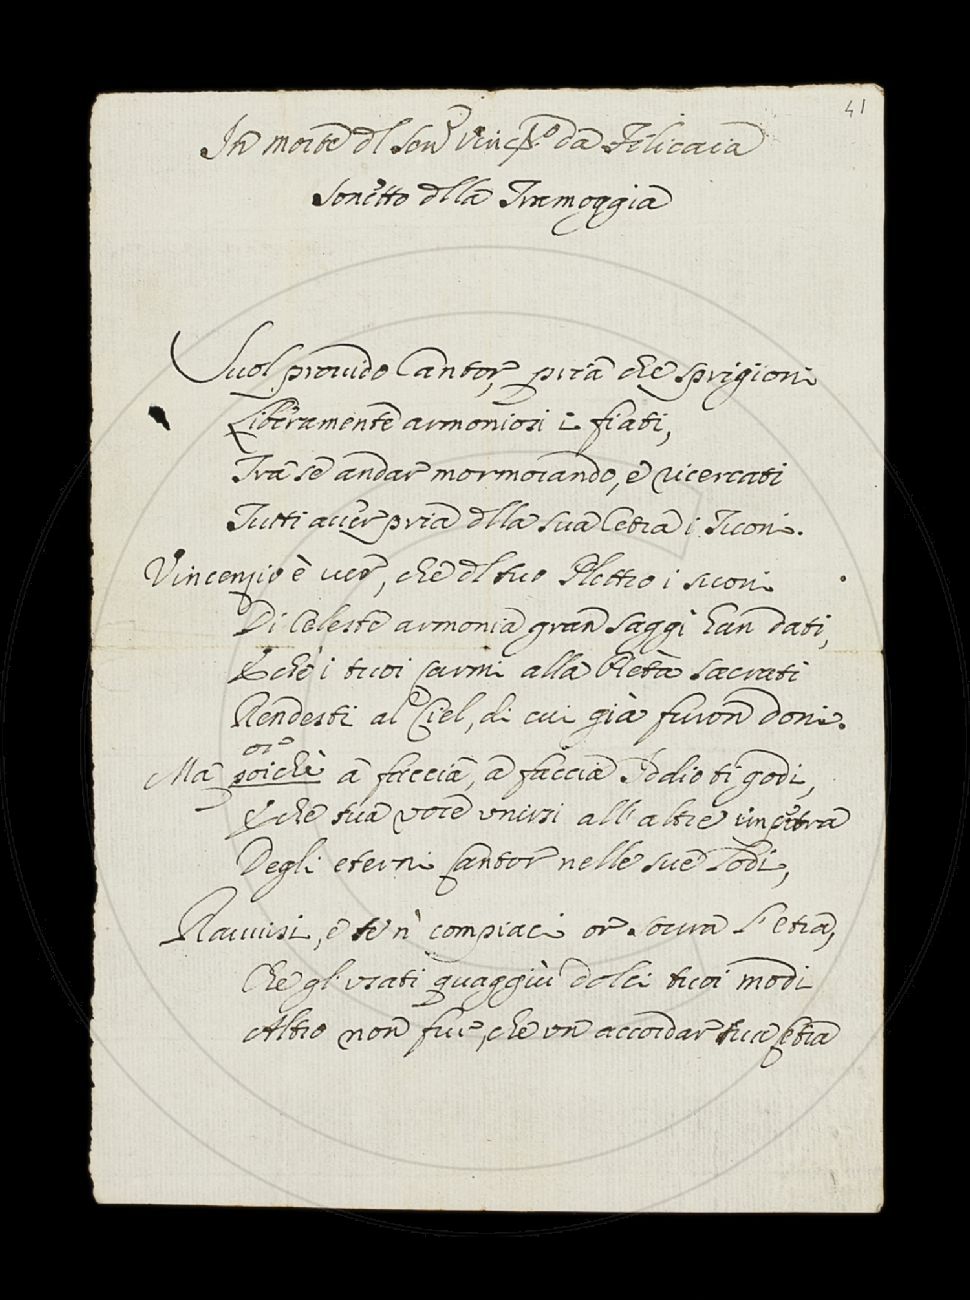 41
In morte dl Sen.r Vinc.o da Filicaia
Sonetto dlla Tramoggia
Suol provido Cantor, pria che sprigioni
Liberamente armoniosi i fiati,
Tra se andar mormorando, e ricercati
Tutti aver pria dlla sua Cetra i Tuoni.
Vincenzio è ver, che dl tuo Plettro i suoni
Di Celeste armonia gran saggi han dati,
E che i tuoi carmi alla Pietà sacrati
Rendesti al Ciel, di cui già furon doni.
or
Ma poichè a faccia, a faccia Iddio ti godi,
E che tua voce unirsi all'altre impetra
Degli eterni Cantor nelle sue Lodi,
Ravvisi, e te n' compiaci or sovra l'etra,
Che gl'usati quaggiù dolci tuoi modi
Altro non fur, che un accordar tua Cetra